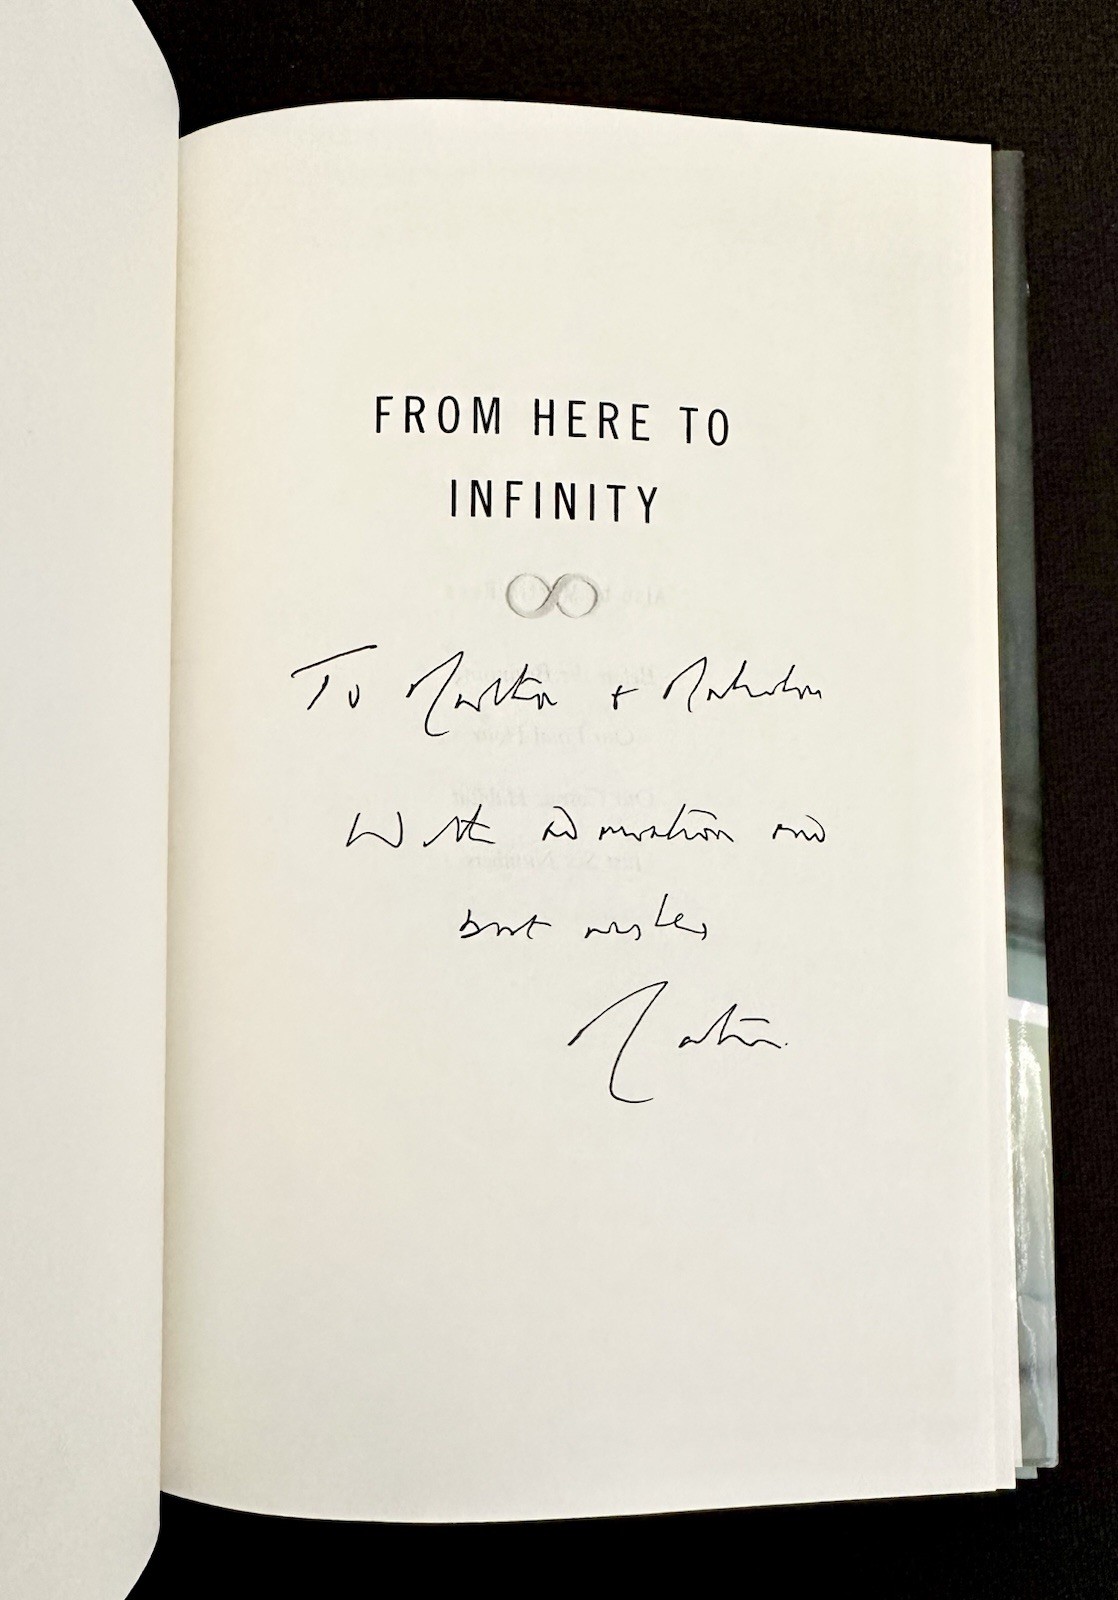 FROM HERE TO
INFINITY
To Martha & Malcolm
With admiration and
best wishes
Martin